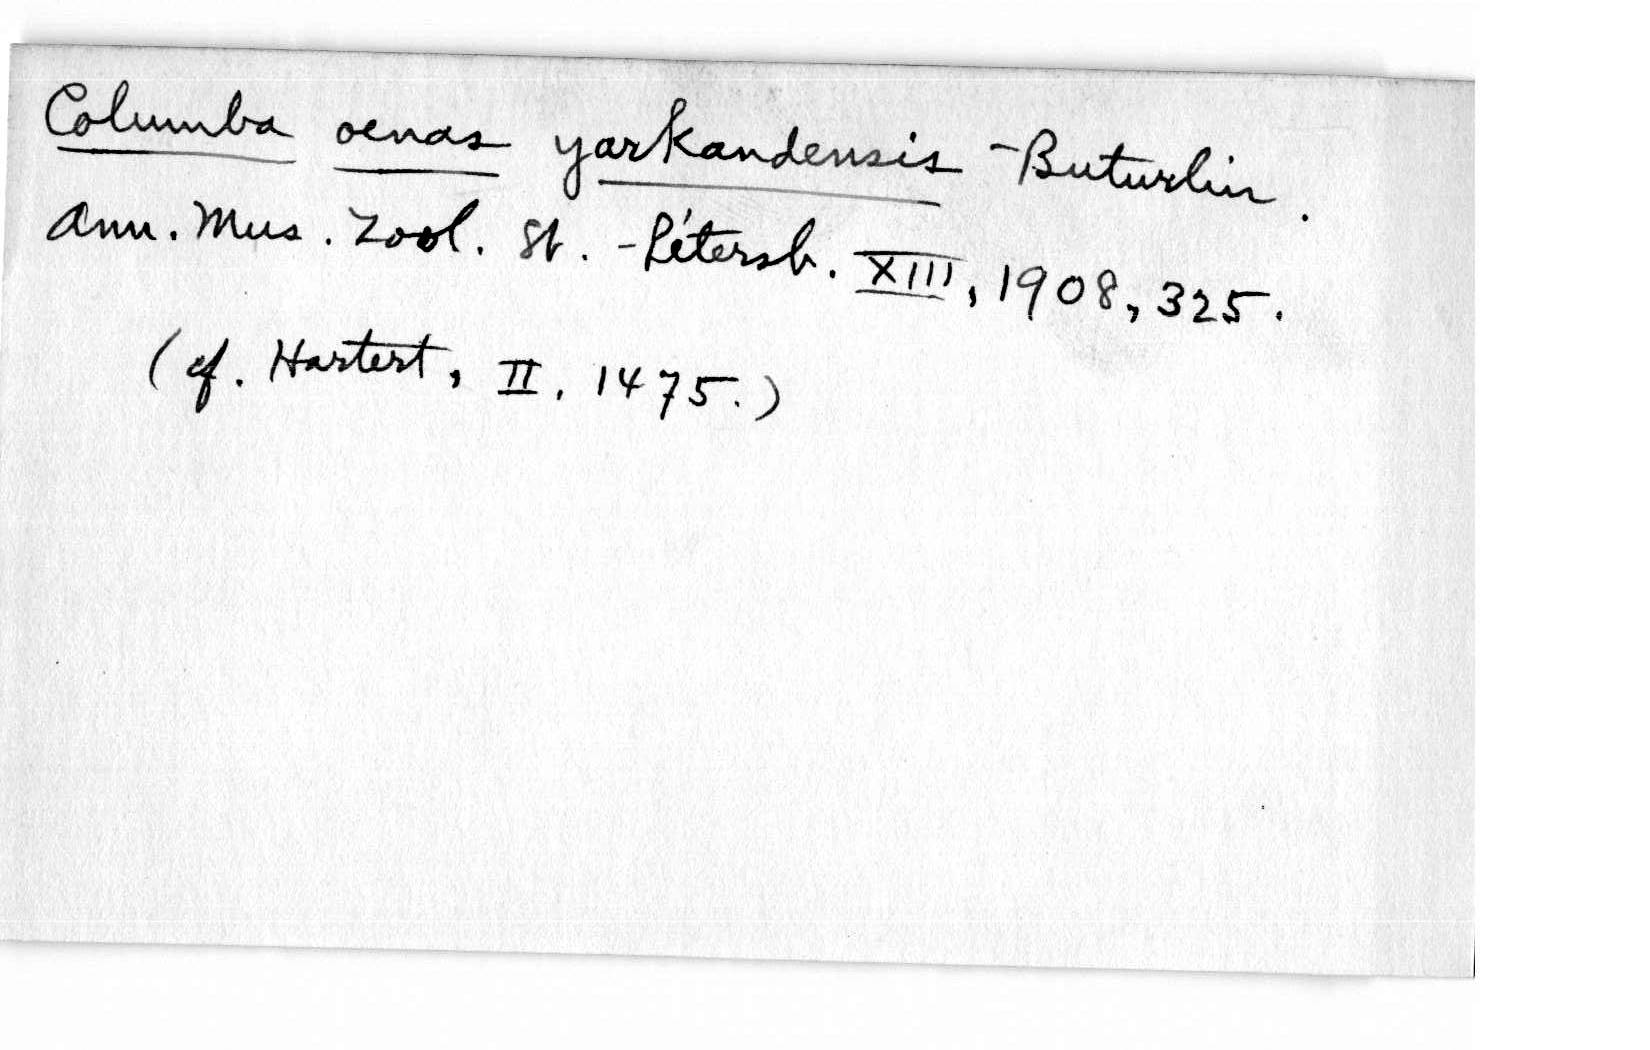 Columba oenas yarkandensis Buturlin.
Ann. Mus. Zool. St.-Pétersb. XIII, 1908, 325.
(cf. Hartert, II, 1475.)